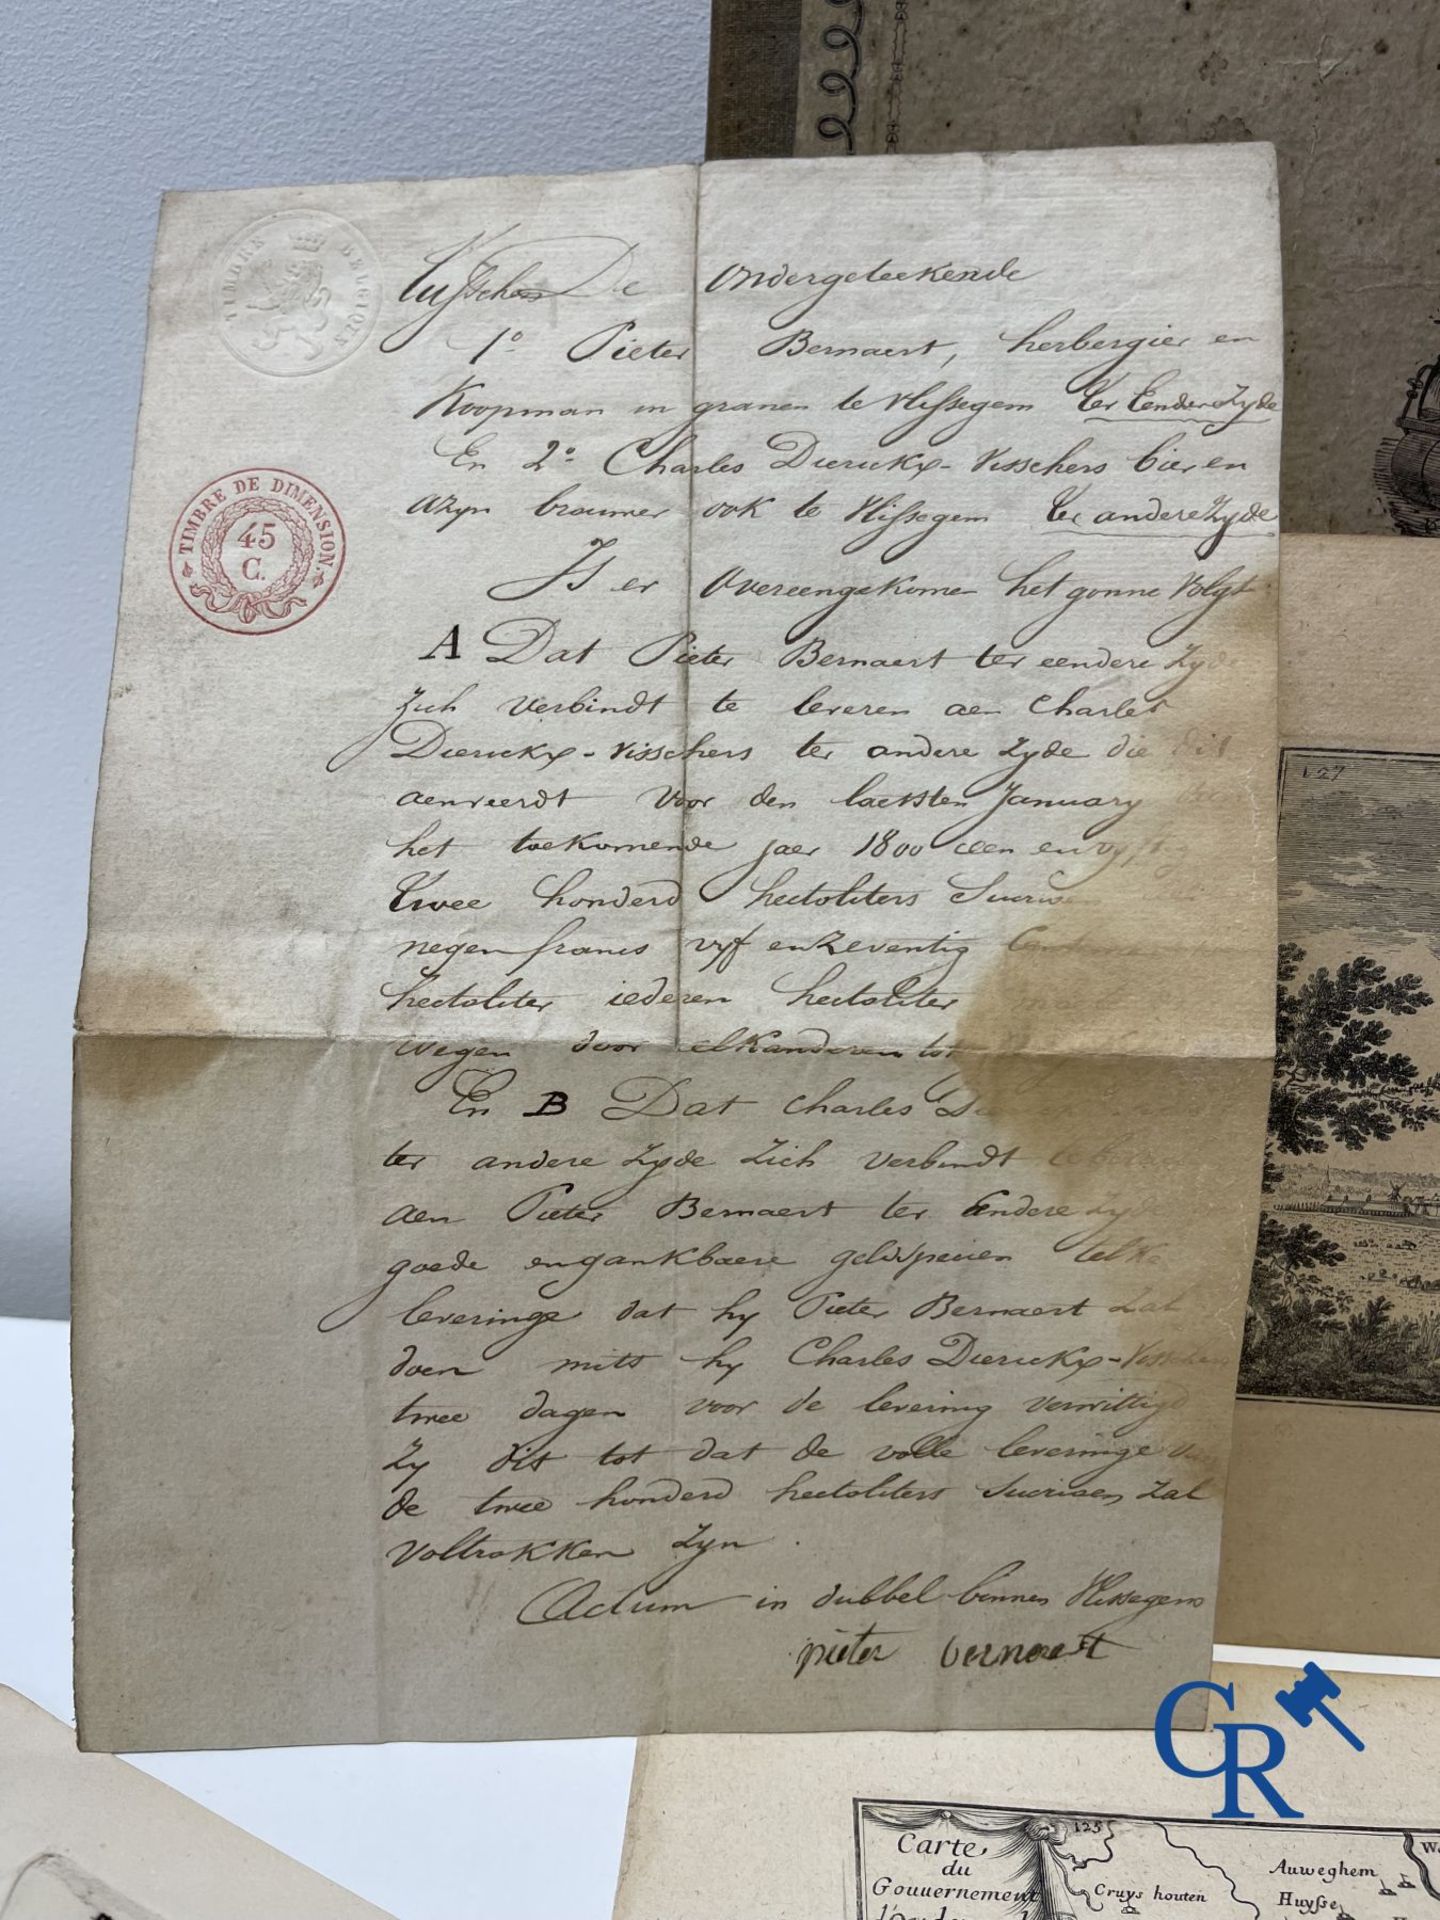 TIMBRE BELGIQUE
Tusschen De Ondergeteekende
1º Pieter Bernaert, herbergier en
Koopman in granen te Hissegem Ter Eender Zyde
En 2º Charles Dierickx-Visschers bier en
azyn brouwer ook te Hissegem Ter andere Zyde
TIMBRE DE DIMENSION.
45
C.
Is er Overeengekomen het gonne Volgt
A Dat Pieter Bernaert ter eendere Zyde
Zich verbindt te leveren aen Charles
Dierickx-Visschers ter andere Zyde die dit
aenveerdt voor den laetsten January
het toekomende jaer 1800 een en vyftig
Twee honderd hectoliters Sucrioen
negen francs vyf en Zeventig
hectoliter iederen hectoliter
wegen door elkanderen tot
En B Dat Charles
ter andere Zyde Zich verbindt te
aen Pieter Bernaert ter Eendere Zyde
goede en gankbaere geldspecien
leveringe dat hy Pieter Bernaert Zal
doen mits hy Charles Dierickx-Visschers
twee dagen voor de levering verwittigd
Zy dit tot dat de volle leveringe van
de twee honderd hectoliters Sucrioen Zal
voltrokken Zyn.
Actum in dubbel binnen Hissegem
pieter bernaert
127
CR
125
Carte
du
Gouuernement
Cruys houten
Auweghem
Huysse